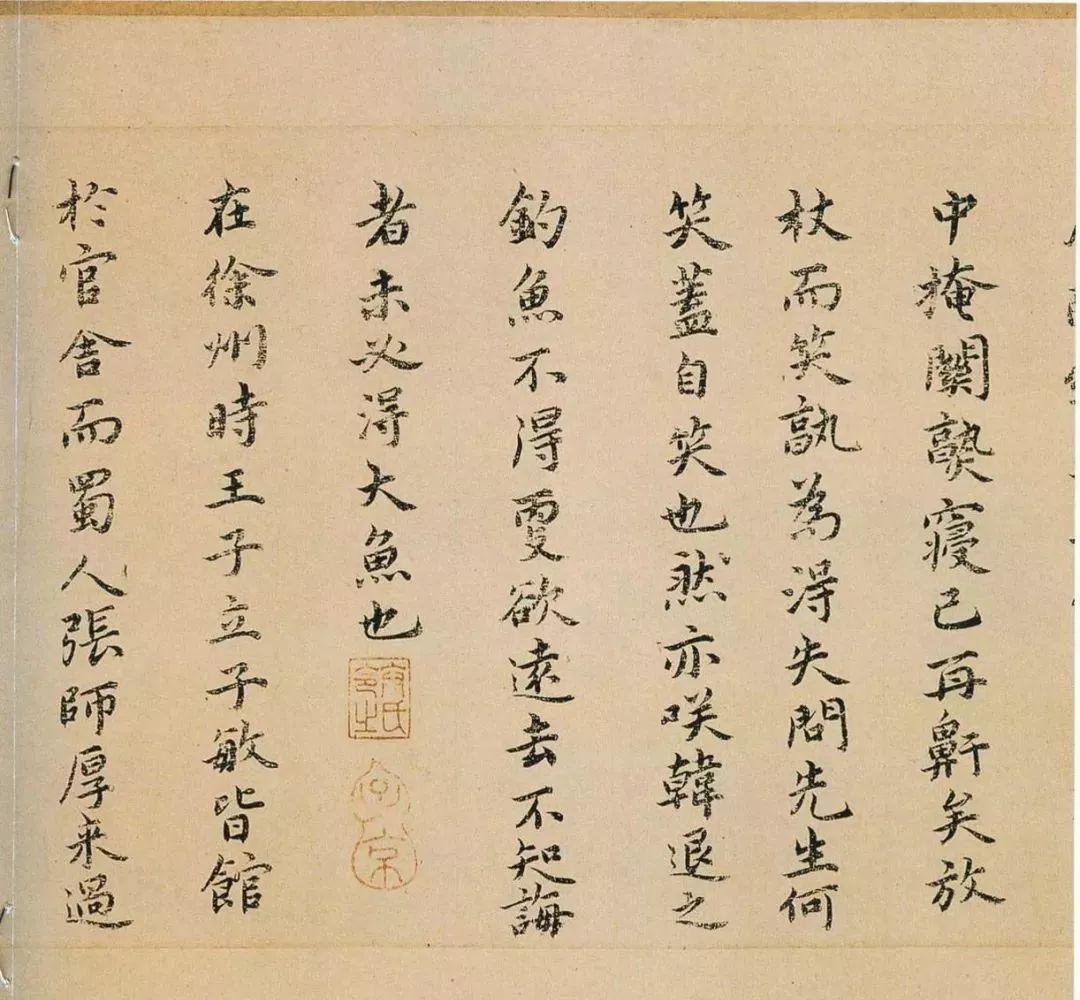 中掩關𭓘寢已再鼾矣放
杖而笑孰為得失問先生何
笑蓋自笑也然亦咲韓退之
釣魚不得更欲遠去不知誨
者未必得大魚也
在徐州時王子立子敏皆館
於官舍而蜀人張師厚来過